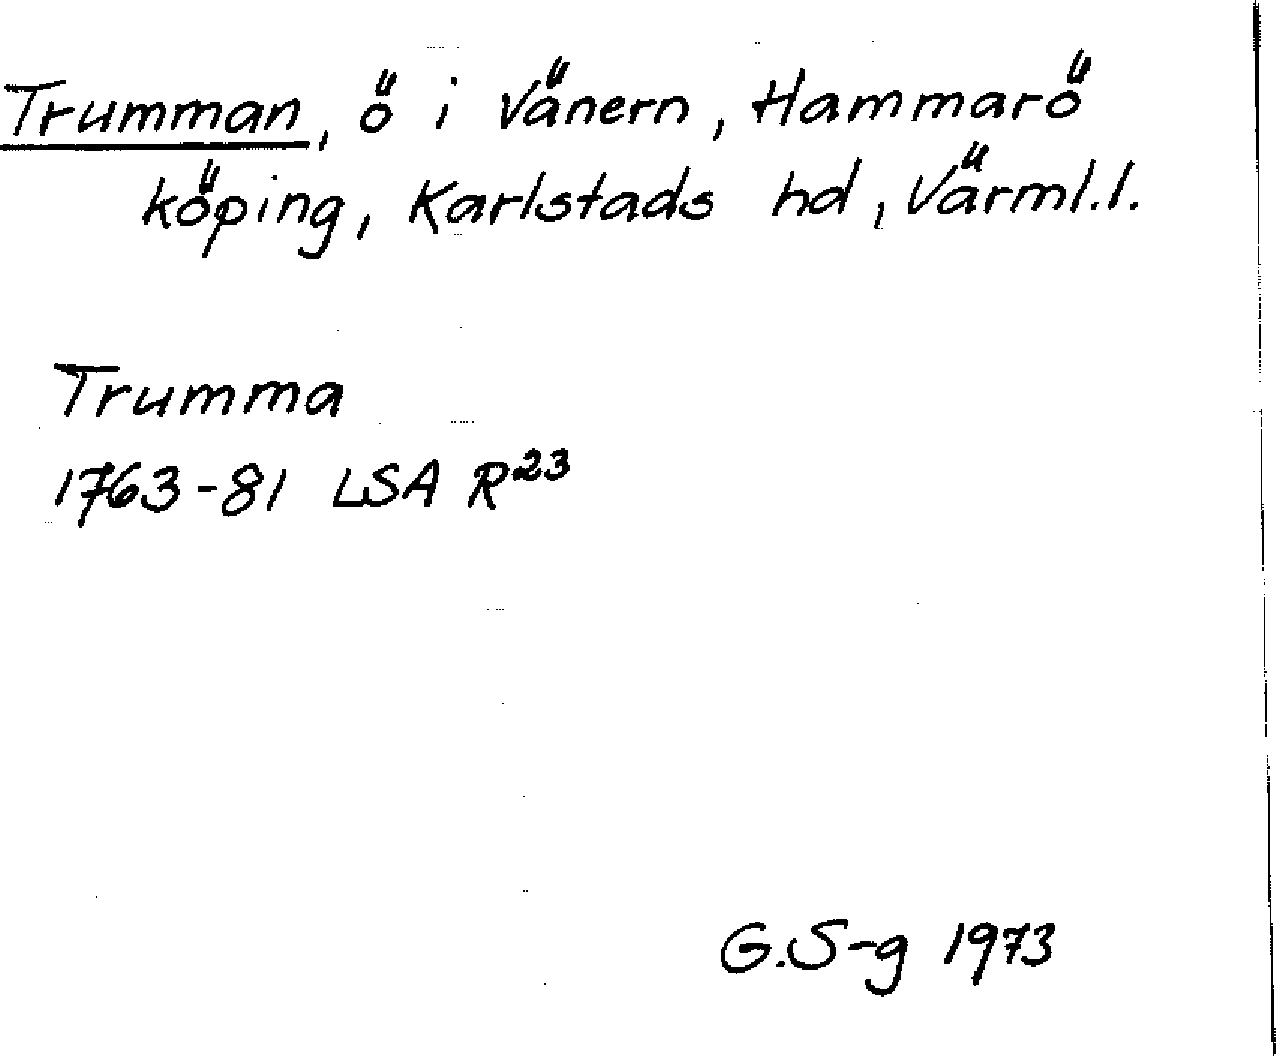 Trumman, ö i Vänern, Hammarö
köping, Karlstads hd, Värml.l.
Trumma
1763-81 LSA R23
G.S-g 1973